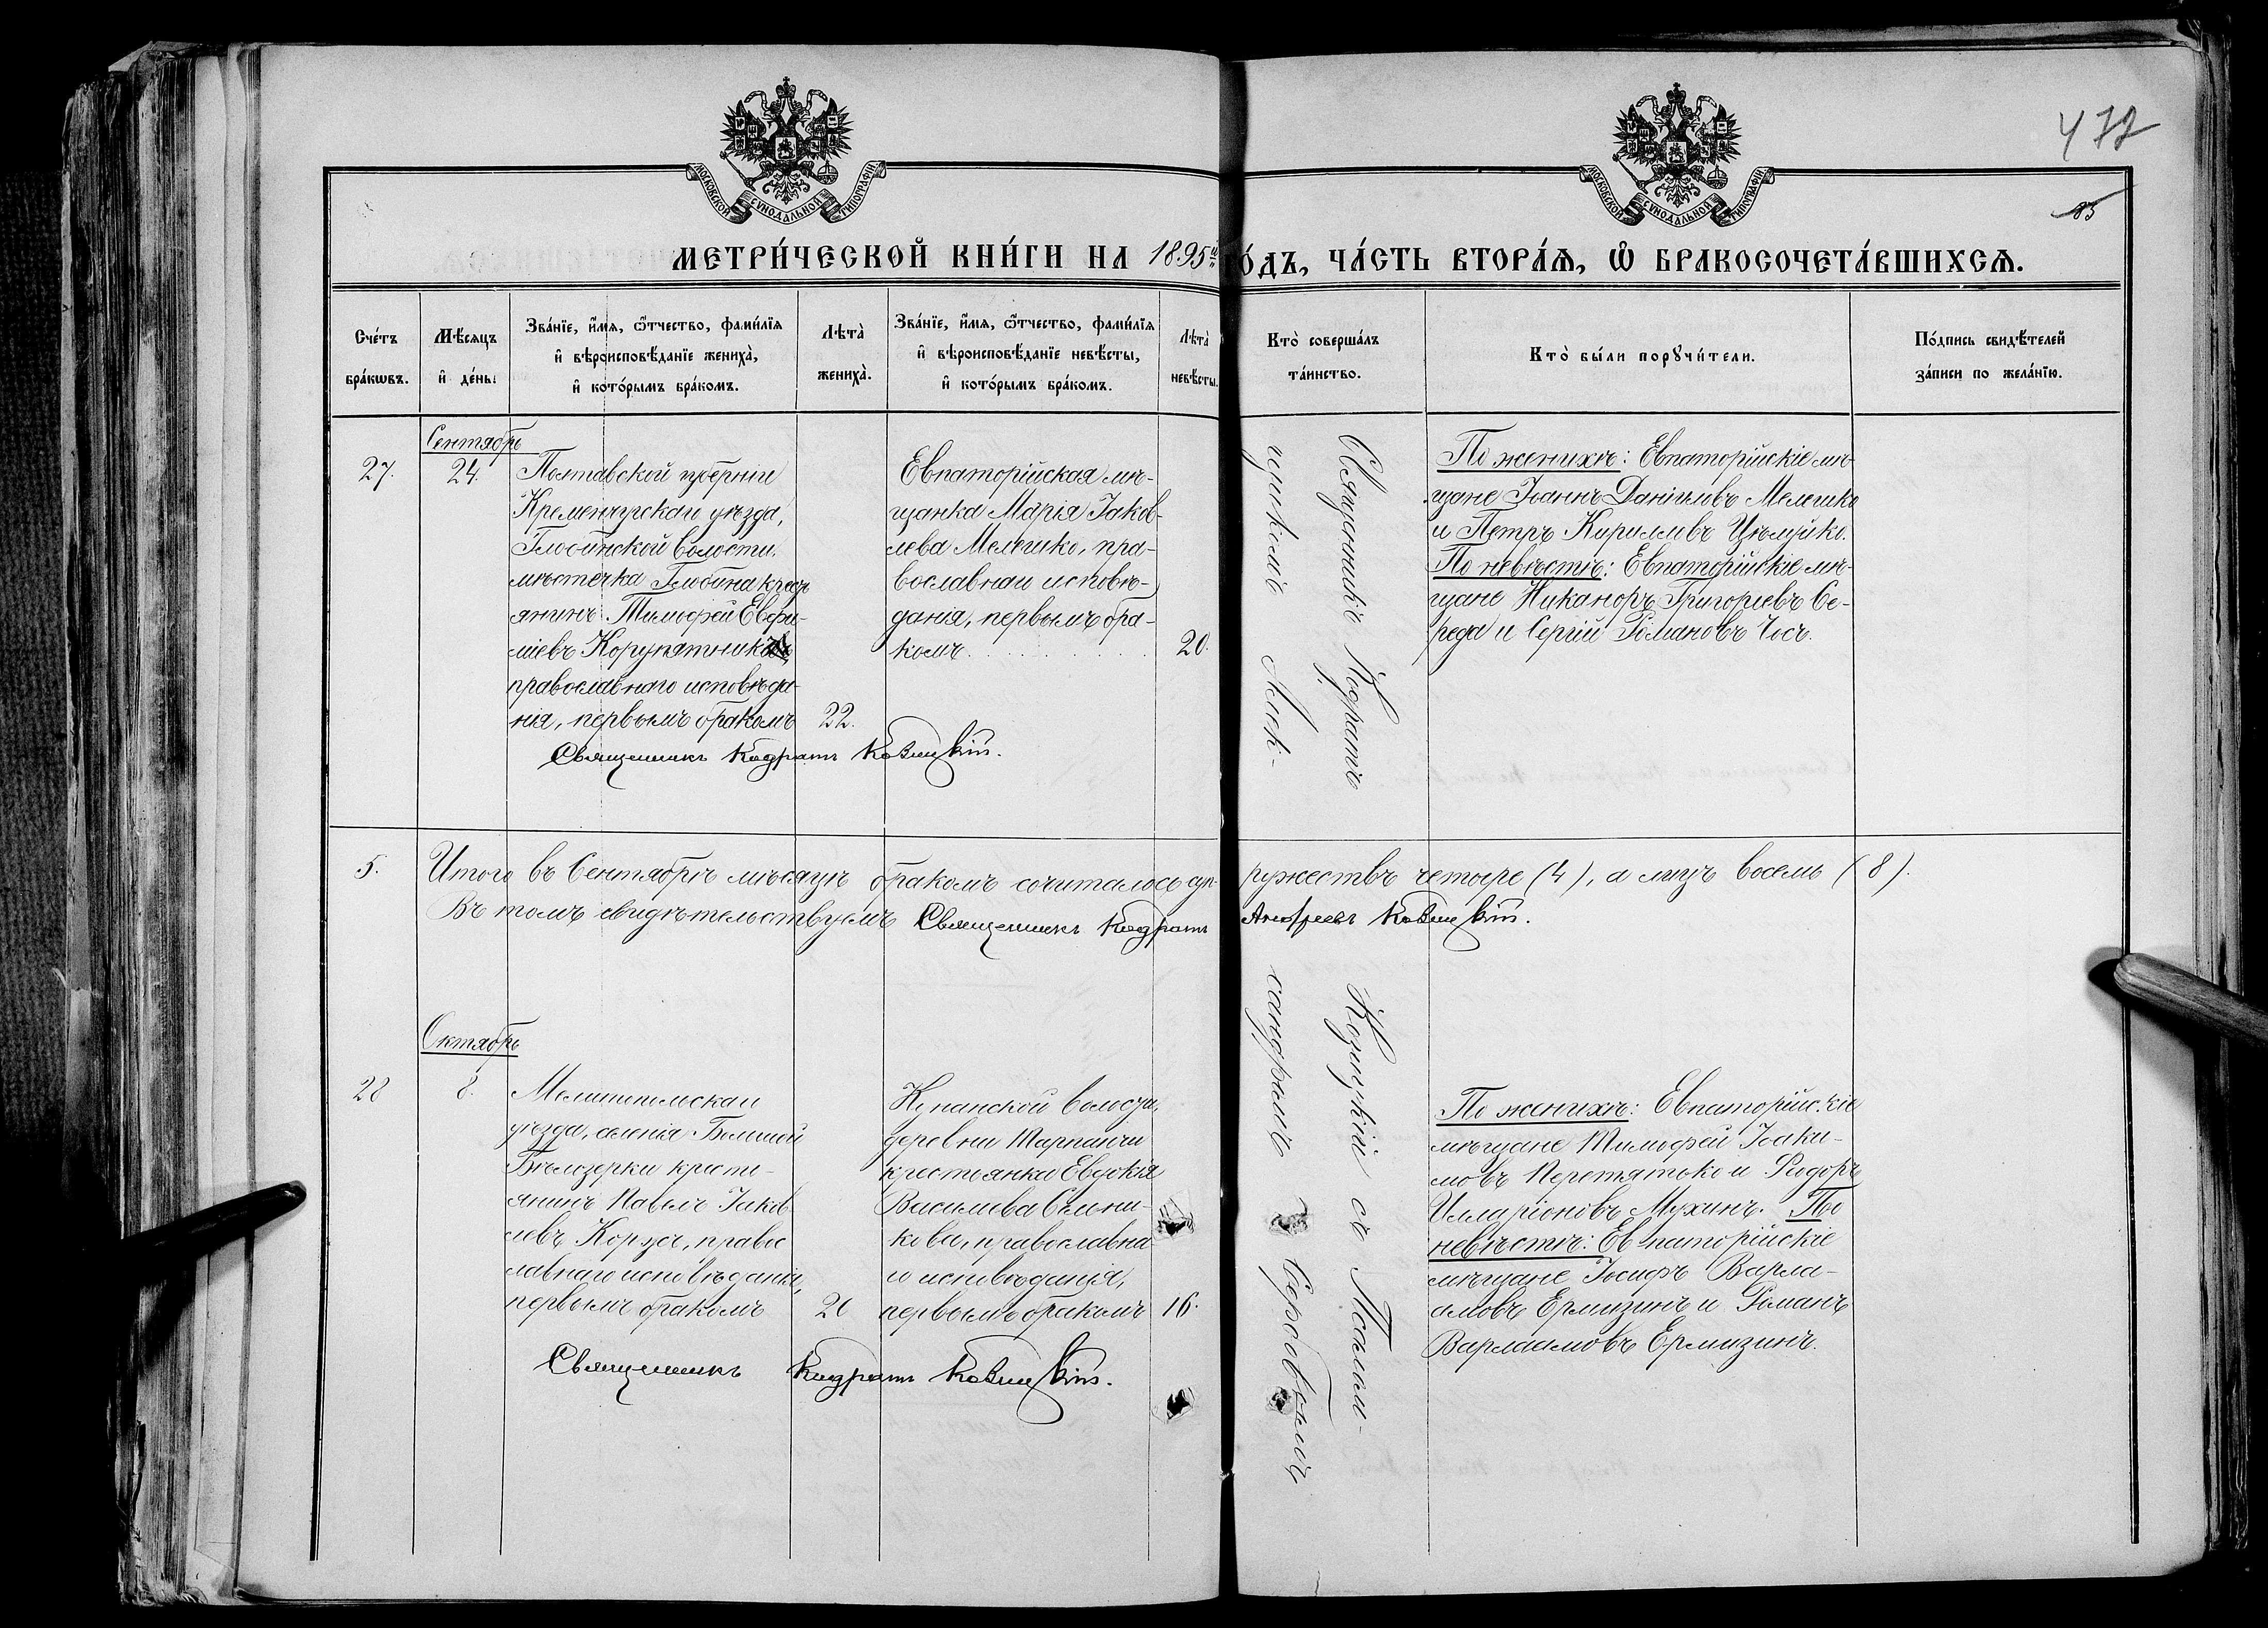 477
85
МОСКОВСКОЙ СѴНОДАЛЬНОЙ ТИПОГРАФІИ
МОСКОВСКОЙ СѴНОДАЛЬНОЙ ТИПОГРАФІИ
МЕТРИ́ЧЕСКОЙ КНИ́ГИ НА 1895й
О́ДЪ, ЧА́СТЬ ВТОРА́Ѧ, Ѽ БРАКОСОЧЕТА́ВШИХСѦ.
Сче́тъ
бра́кѡвъ.
Мѣ́сѧцъ
и҆ де́нь.
Зва́нїе, и҆́мѧ, ѻ҆́тчество, фамі́лїѧ
и҆ вѣроисповѣ́данїе жениха̀,
и҆ кото́рымъ бра́комъ.
Лѣта̀
жениха̀.
Зва́нїе, и҆́мѧ, ѻ҆́тчество, фамі́лїѧ
и҆ вѣроисповѣ́данїе невѣ́сты,
и҆ кото́рымъ бра́комъ.
Лѣта̀
невѣ́сты.
Кто̀ соверша́лъ
та́инство.
Кто̀ бы́ли порꙋчи́тели.
По́дпись свидѣ́телей
за́писи по жела́нїю.
Сентябрь
27.
24.
Полтавской губерніи
Кременчугскаго уѣзда,
Глобинской волости,
мѣстечка Глобина кресть
янинъ Тимофей Евфи-
міевъ
православнаго исповѣда-
нія, первымъ бракомъ
22.
Евпаторійская мѣ-
щанка Марія Іаков-
лева Мелешко, пра-
вославнаго исповѣ-
данія, первымъ бра-
комъ
20.
Священникъ Кодратъ Козицкій с Псалом-
щикомъ Алек-
сандромъ Серовымъ
По женихѣ: Евпаторійскіе мѣ-
щане Іоаннъ Даніиловъ Мелешко
и Петръ Кирилловъ
По невѣстѣ: Евпаторійскіе мѣ-
щане Никаноръ Григорьевъ Се-
реда и Сергій Романовъ
Священникъ Кодратъ Козицкій.
5.
Итого въ Сентябрѣ мѣсяцѣ бракомъ сочиталось суп-
ружествъ четыре (4), а лицъ восемь (8).
Въ томъ свидѣтельствуемъ Священникъ Кодратъ
Андреевъ Козицкій.
Октябрь
28
8.
Мелитопольскаго
уѣзда, селенія Большой
Бѣлозерки кресть-
янинъ Павелъ Іаков
левъ Коржъ, правос
лавнаго исповѣданія,
первымъ бракомъ
20
волости,
деревни
крестьянка Евдокія
Васильева
кова, православна
го исповѣданія,
первымъ бракомъ
16.
По женихѣ: Евпаторійскіе
мѣщане Тимофей Іоаки-
мовъ Перетятько и Ѳеодоръ
Илларіоновъ Мухинъ. По
невѣстѣ: Евпаторійскіе
мѣщане Іосифъ Варла-
амовъ Ермизинъ и Романъ
Варлаамовъ Ермизинъ.
Священникъ Кодратъ Козицкій.